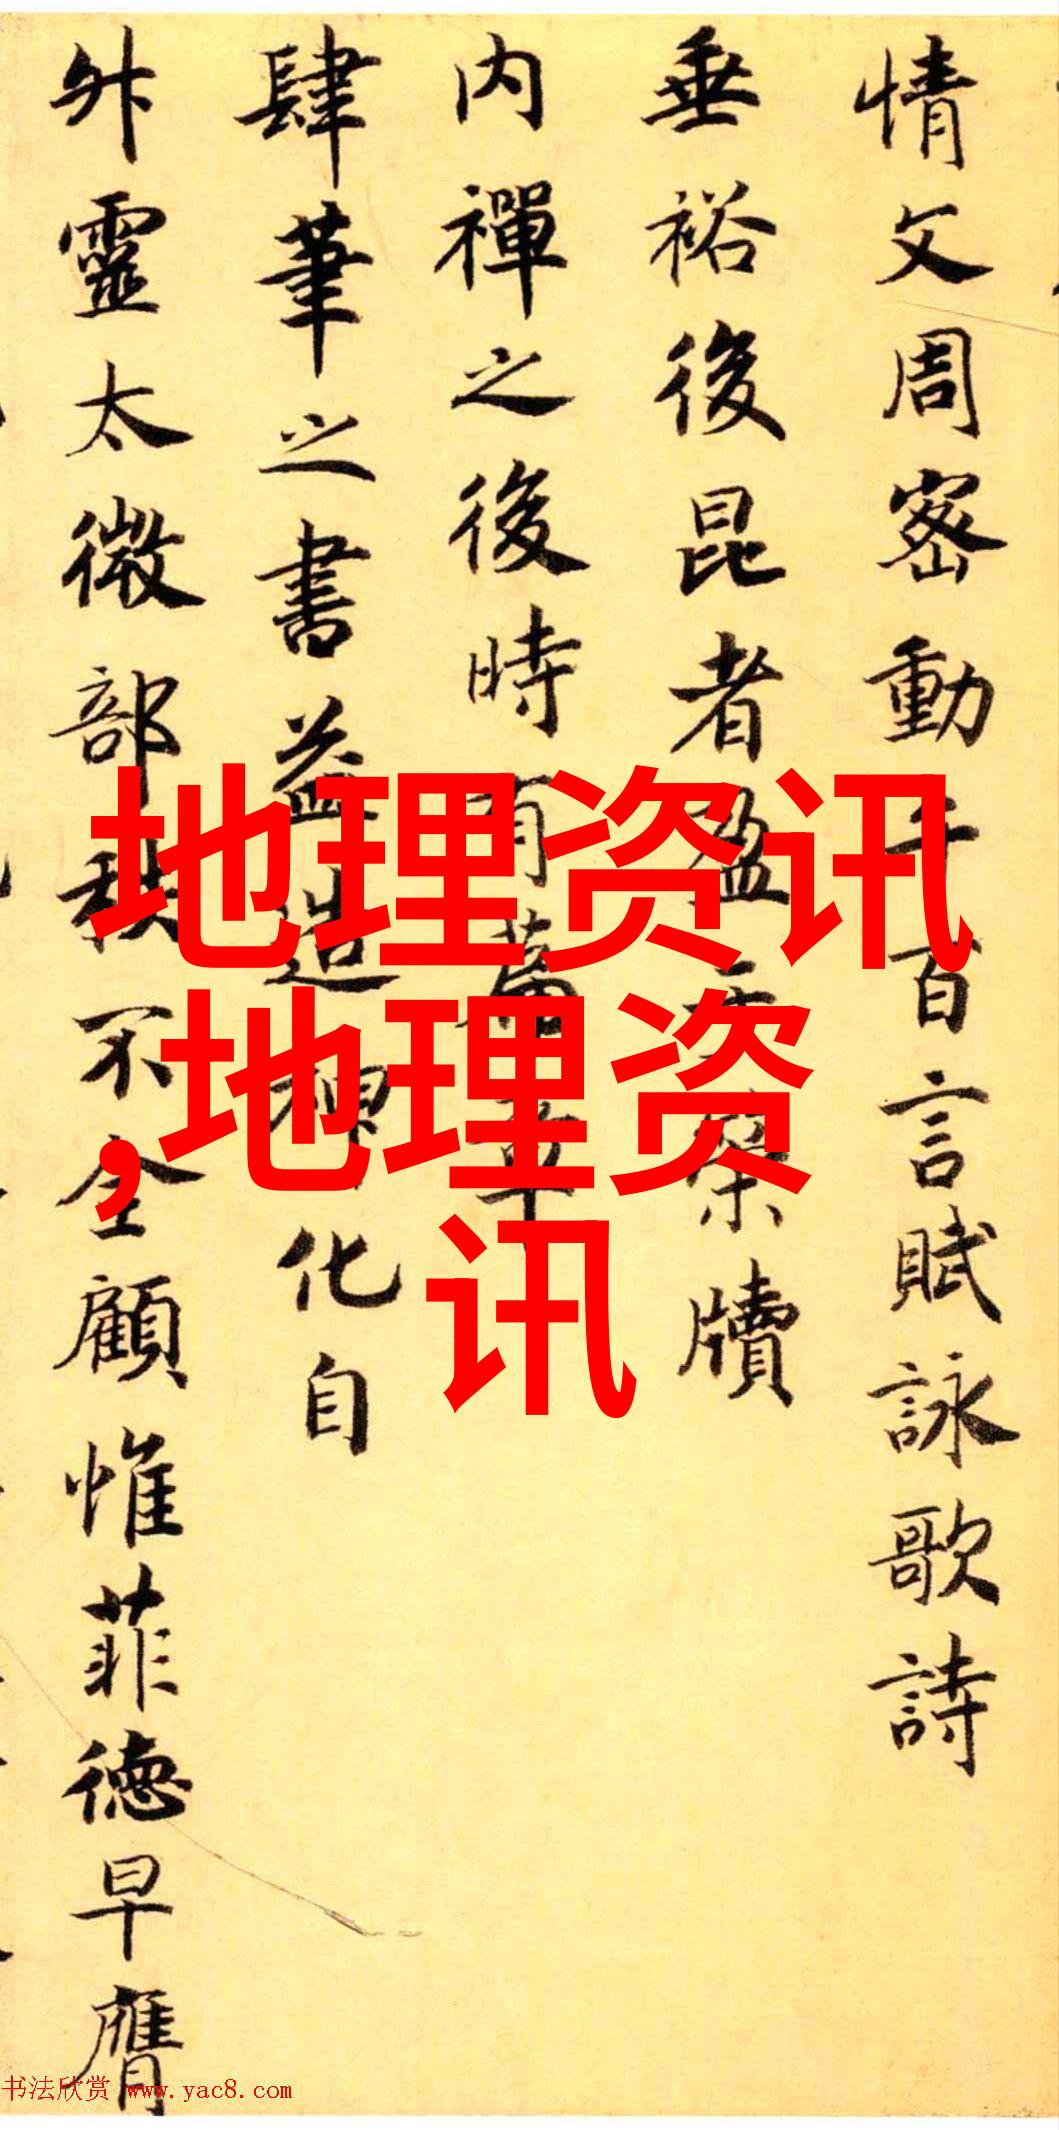 情文周密動千百言賦詠歌詩
垂裕後昆者盈于架牘
内禪之後時有篇章
肆筆之書益造神化自
升靈太微部秩不全顧惟菲德早膺
地理资讯
,地理资
讯
书法欣赏 www.yac8.com